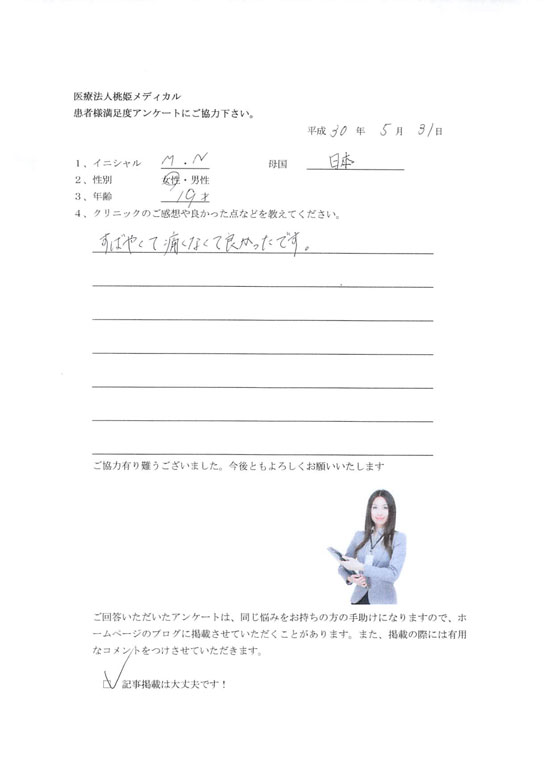 医療法人桃姫メディカル
患者様満足度アンケートにご協力下さい。
平成 30 年 5 月 31日
1、イニシャル M・N 母国 日本
2、性別 女性・男性
3、年齢 19才
4、クリニックのご感想や良かった点などを教えてください。
すばやくて痛くなくて良かったです。
ご協力有り難うございました。今後ともよろしくお願いいたします
ご回答いただいたアンケートは、同じ悩みをお持ちの方の手助けになりますので、ホ
ームページのブログに掲載させていただくことがあります。また、掲載の際には有用
なコメントをつけさせていただきます。
☑ 記事掲載は大丈夫です！